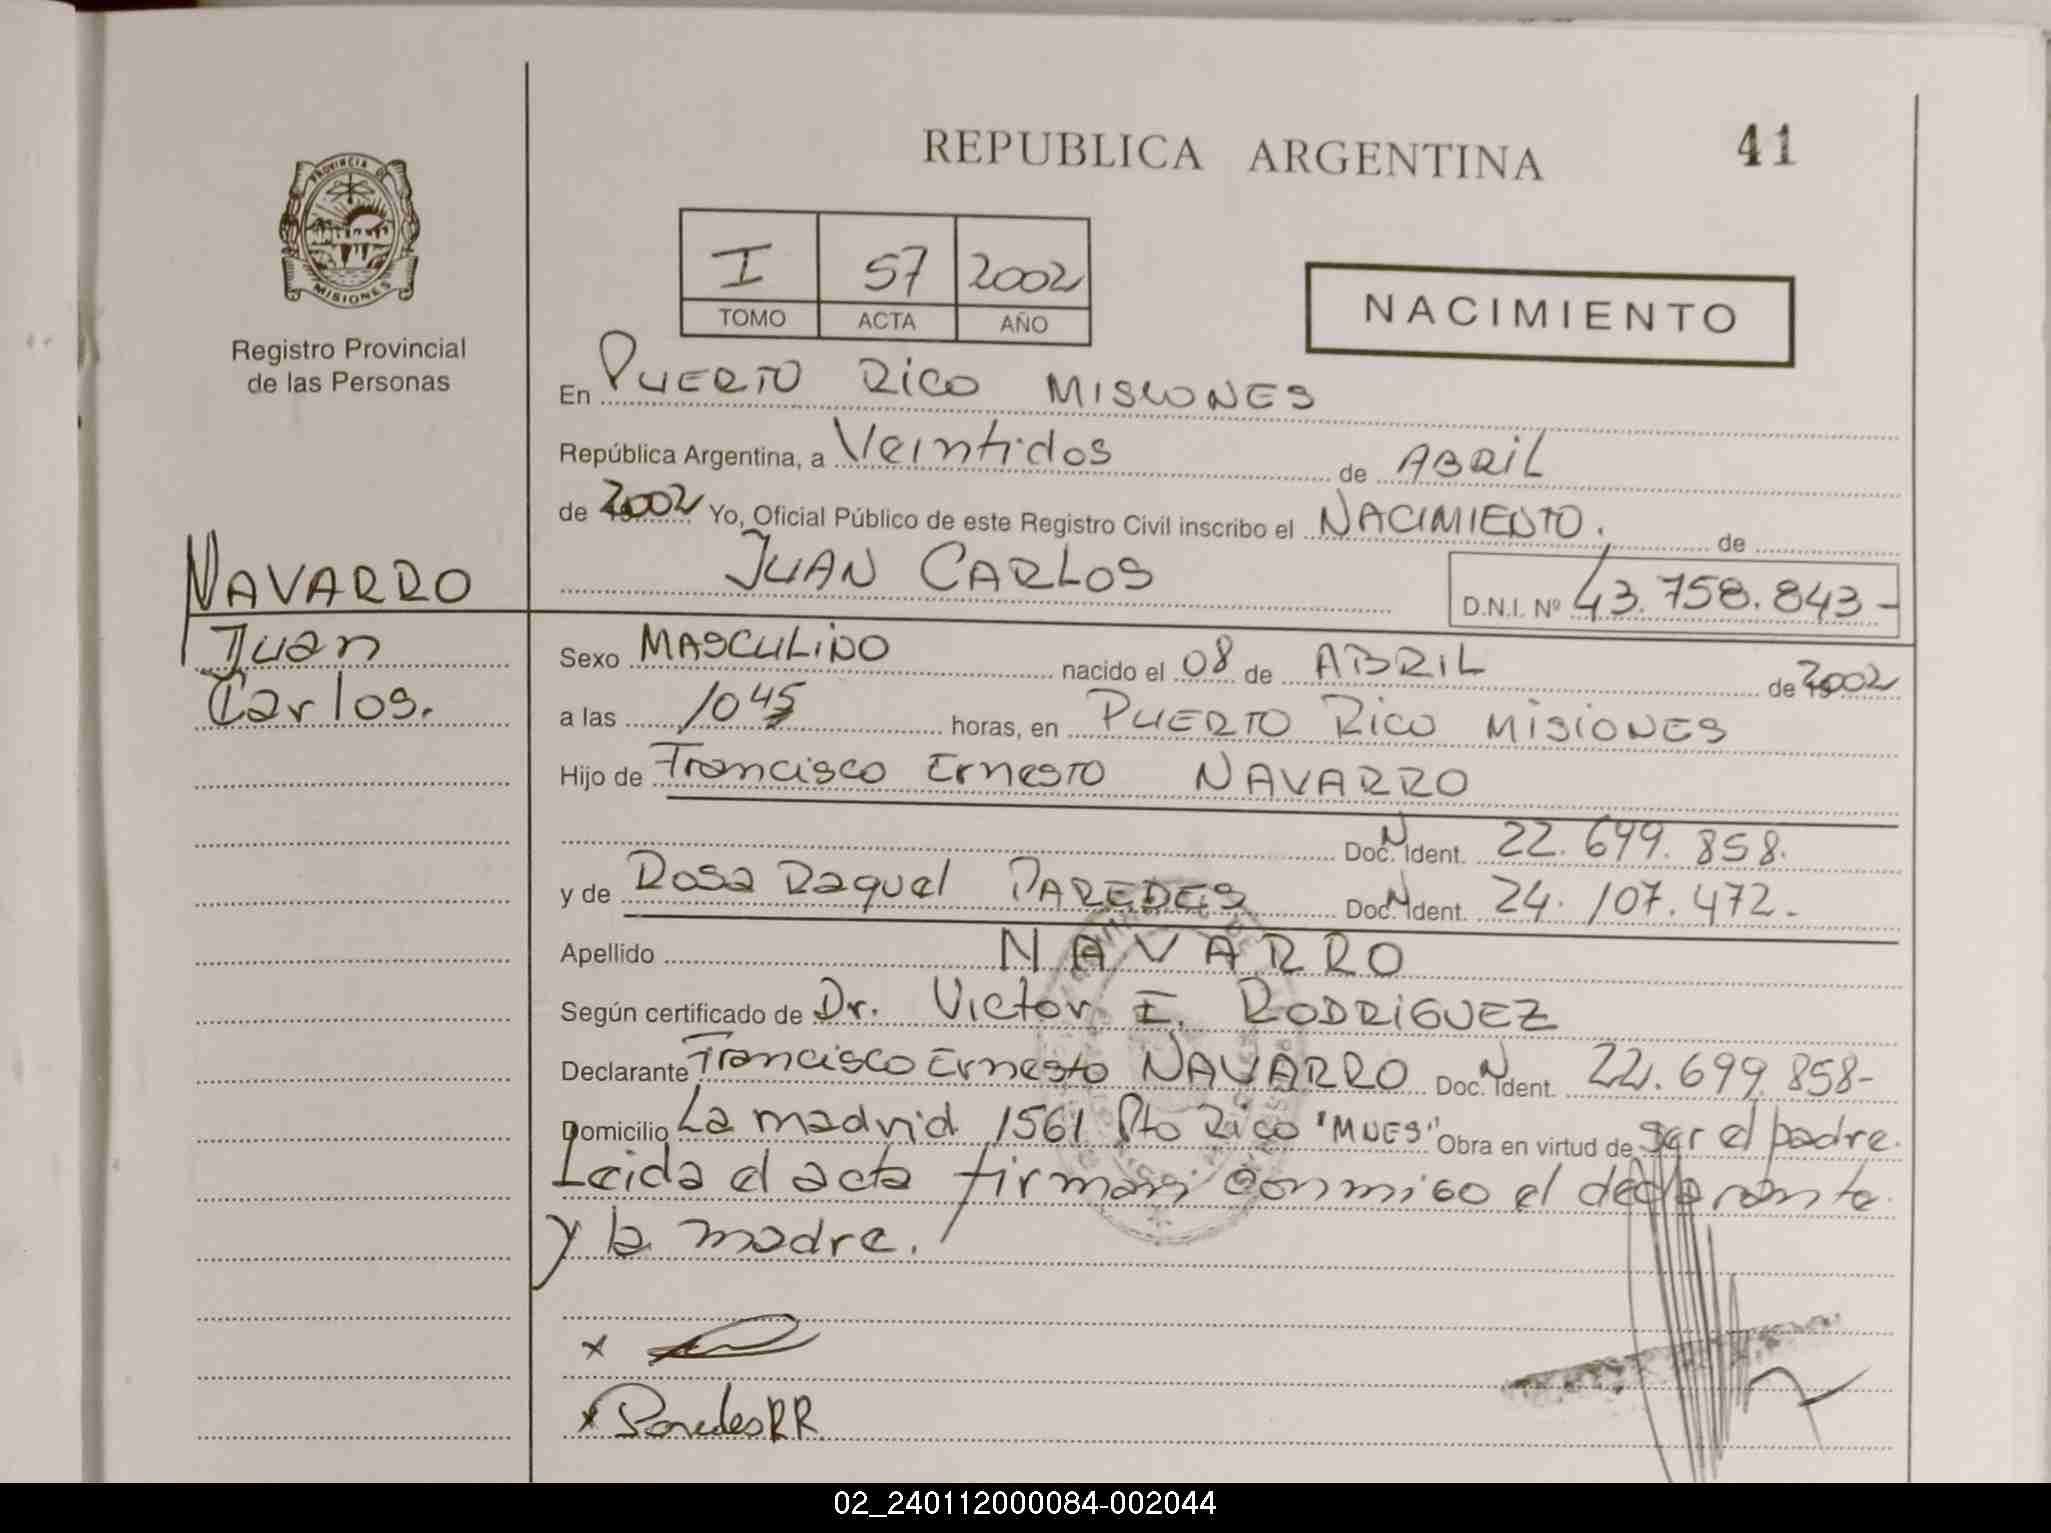 REPUBLICA ARGENTINA
41
PROVINCIA DE
MISIONES
Registro Provincial
de las Personas
I 57 2002
TOMO ACTA AÑO
NACIMIENTO
En PUERTO RICO MISIONES
República Argentina, a Veintidos de ABRIL
de 2002 Yo, Oficial Público de este Registro Civil inscribo el NACIMIENTO. de
JUAN CARLOS
D.N.I. Nº 43.758.843-
NAVARRO
Juan
Carlos.
Sexo MASCULINO nacido el 08 de ABRIL de 2002
a las 1045 horas, en PUERTO RICO MISIONES
Hijo de Francisco Ernesto NAVARRO
Doc. N Ident. 22.699.858.
y de Rosa Raquel PAREDES Doc. N Ident. 24.107.472-
Apellido NAVARRO
Según certificado de Dr. Victor I. RODRIGUEZ
Declarante Francisco Ernesto NAVARRO Doc. N Ident. 22.699.858-
Domicilio La madrid 1561 Pto Rico "MNES" Obra en virtud de ser el padre.
Leida el acta firman conmigo el declarante
y la madre.
x
x ParedesRR.
02_240112000084-002044